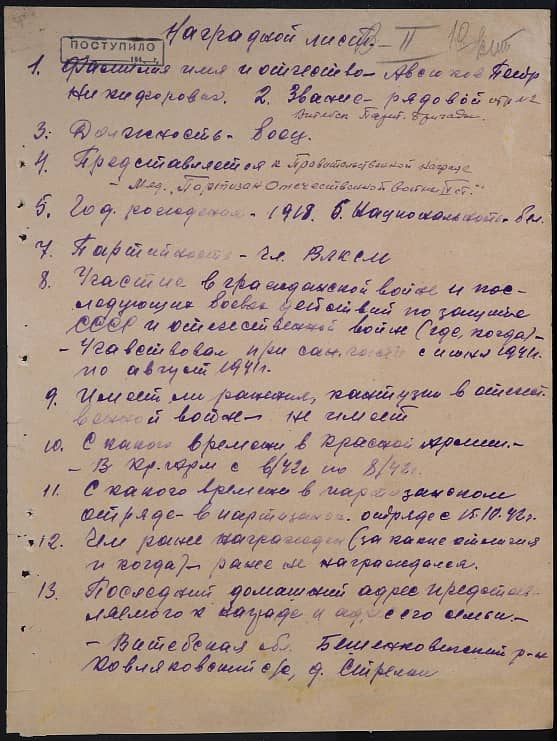 Наградной лист.
II
ПОСТУПИЛО
1. Фамилия имя и отчество - Авсюков Петр
Никифорович. 2. Звание - рядовой
Витебск. Парт. Бригады.
3. Должность - боец.
4. Представляется к Правительственной награде
- Мед. "Партизан Отечественной Войны II ст."
5. Год рождения - 1918. 6. Национальность - бел.
7. Партийность - чл. ВЛКСМ
8. Участие в гражданской войне и пос-
ледующих боевых действий по защите
СССР и отечественной войне (где, когда) -
- Учавствовал при с июня 1941г.
по август 1941г.
9. Имеет ли ранения, контузии в отечест-
венной войне - не имеет
10. С какого времени в Красной Армии. -
- В Кр. Арм с 6/42г по 8/42г.
11. С какого времени в партизанском
отряде - в партизанск. отряде с 15.10.42г.
12. Чем ранее награжден (за какие отличия
и когда) - ранее не награждался.
13. Последний домашний адрес представ-
ляемого к награде и адрес его семьи. -
- Витебская обл. Бешенковичский р-н
Ковляковский с/с, д. Стрелки